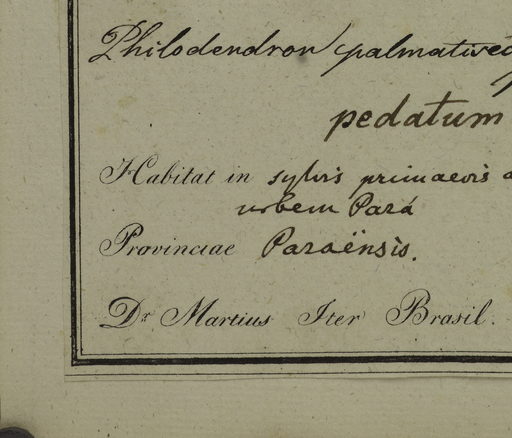 Philodendron palmatised
pedatum
Habitat in sylvis primaevis
urbem Pará
Provinciae Paraënsis.
Dr Martius Iter Brasil.